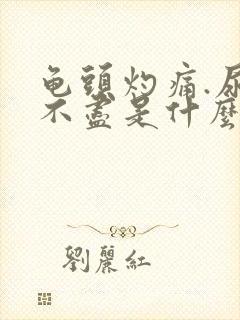 龟頭灼痛.尿
不盡是什麼
劉麗紅